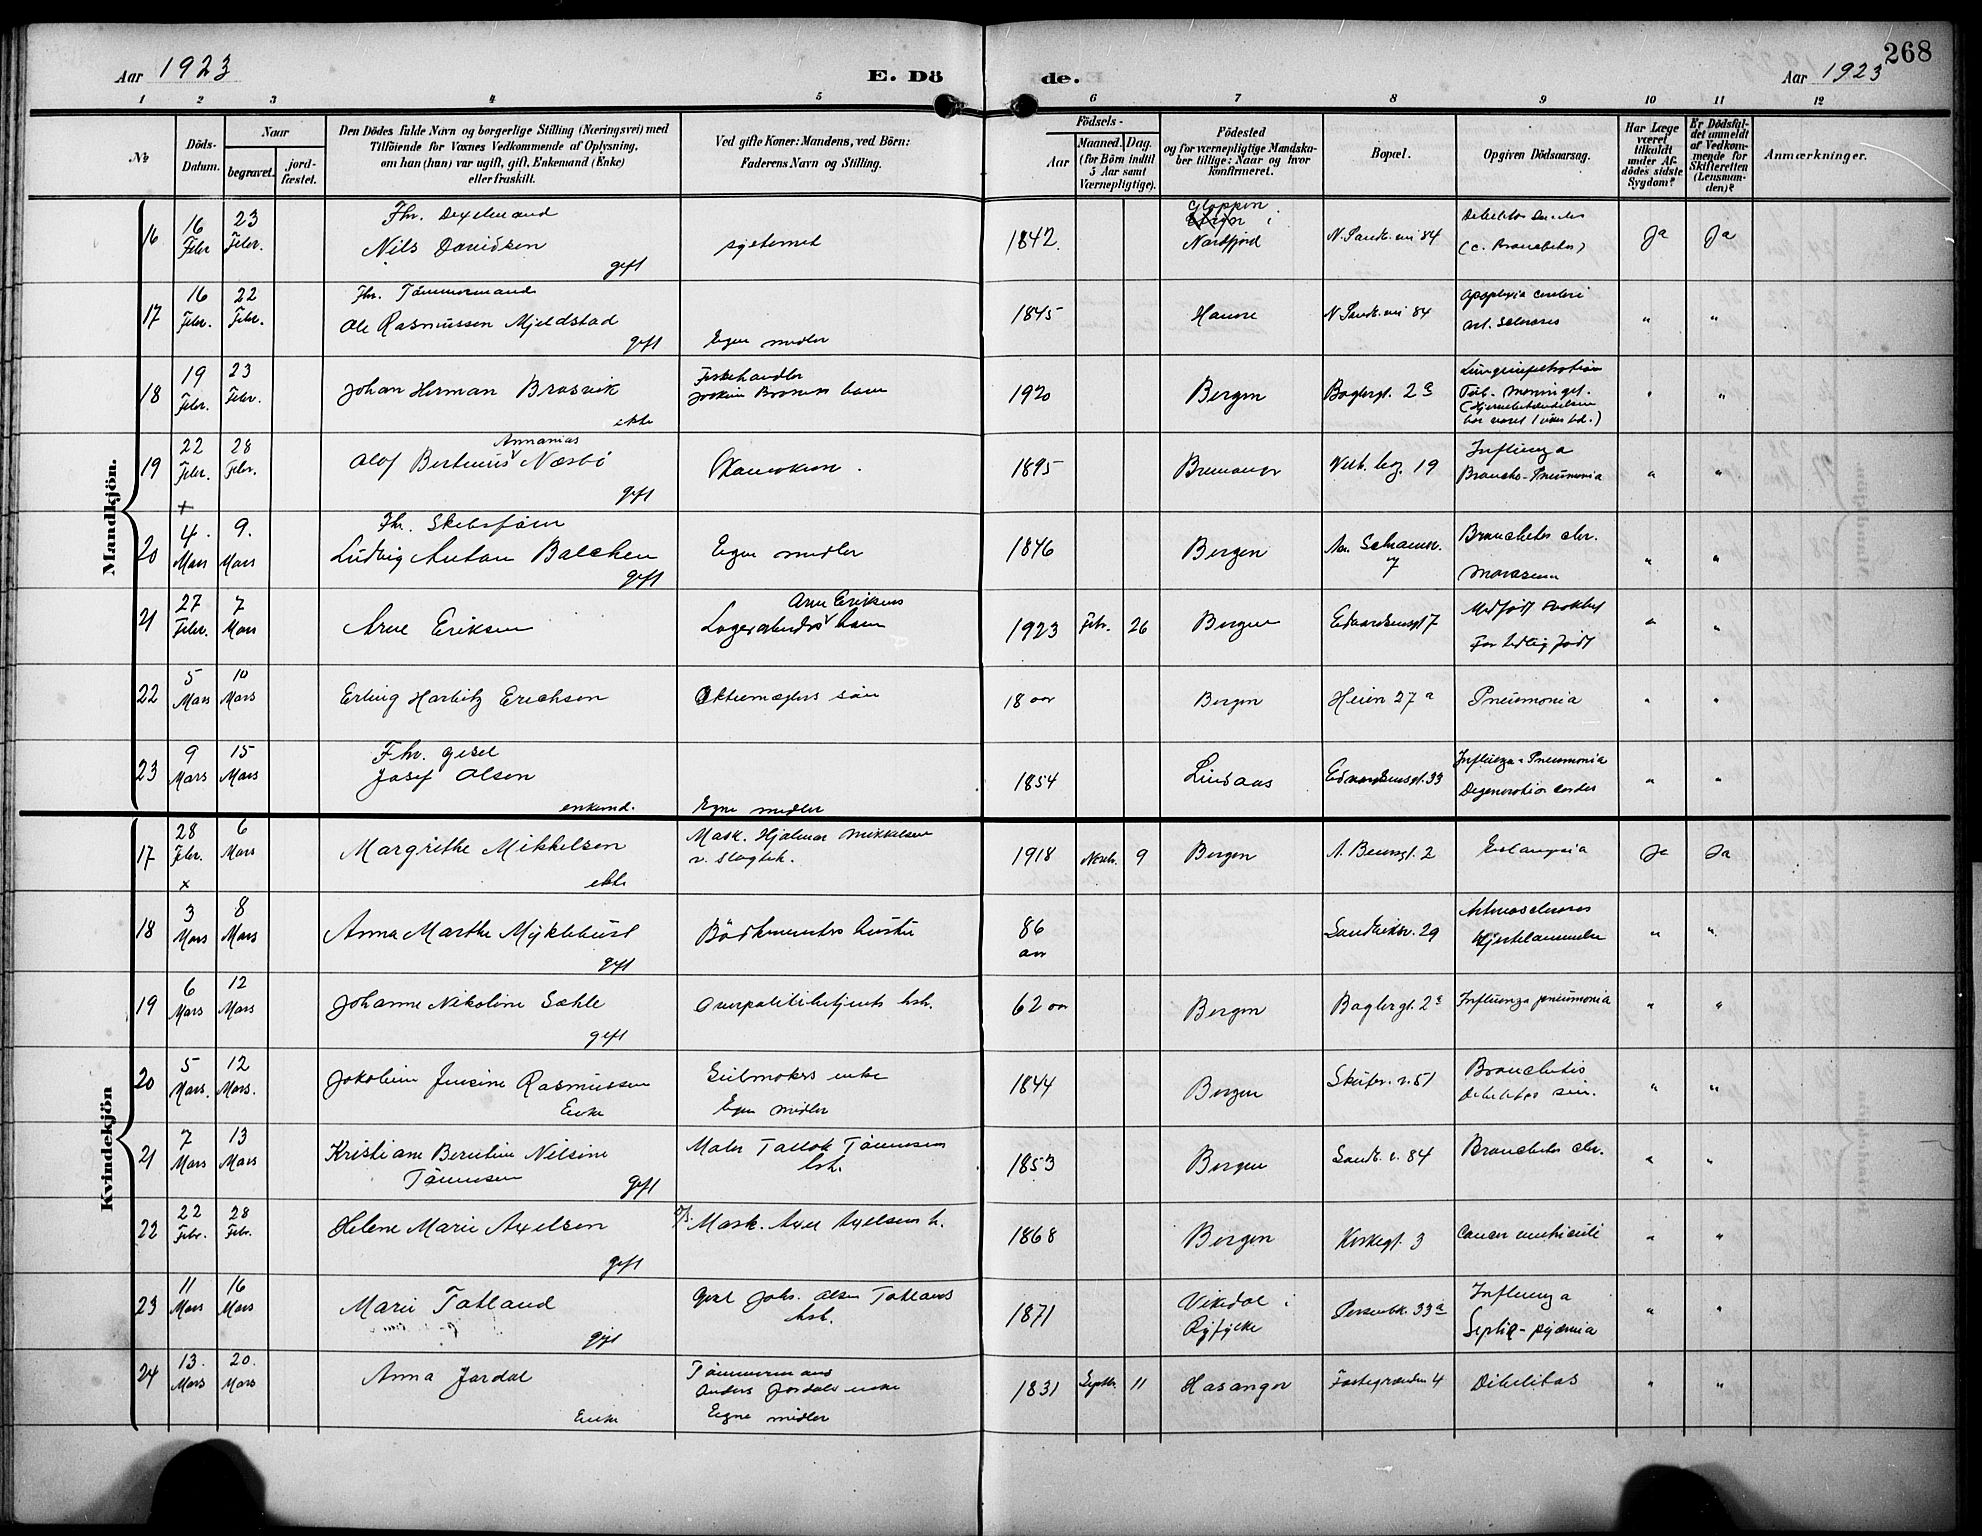 268
Aar 1923
E. Dö
de.
Aar 1923
1 2 3 4 5 6 7 8 9 10 11 12
No
Döds-
Datum.
Naar
begravet.
jord-
fæstet.
Den Dödes fulde Navn og borgerlige Stilling (Næringsvei) med
Tilföiende for Voxnes Vedkommende af Oplysning,
om han (hun) var ugift, gift, Enkemand (Enke)
eller fraskilt.
Ved gifte Koner: Mandens, ved Börn:
Faderens Navn og Stilling.
Födsels-
Aar
Maaned. Dag.
(for Börn indtil
5 Aar samt
Værnepligtige).
Födested
og for værnepligtige Mandska-
ber tillige: Naar og hvor
konfirmeret.
Bopæl.
Opgiven Dödsaarsag.
Har Læge
været
tilkaldt
under Af-
dödes sidste
Sygdom?
Er Dödsfal-
det anmeldt
af Vedkom-
mende for
Skifteretten
(Lensman-
den)?
Anmærkninger.
Mandkjön.
16
16
Febr
23
Febr.
Fhv.
Nils Davidsen
gift
1842.
Gloppen
i
Nordfjord
N. Sandv. vei 84
Ja
Ja
17
16
Febr.
22
Febr.
Fhv. Tömmermand
Ole Rasmussen Mjeldstad
gift
Egne midler
1845
Hamre
N. Sandv. vei 84
Apoplexia cerebri
" "
18
19
Febr.
23
Febr.
Johan Herman Brosvik
ekte
Fiskehandler
1920
Bergen
Baglergt. 2a
Tub. Meningit.
" "
19
22
Febr.
+
28
Febr.
Annanias
Olof Bertinius Næsbö
gift
1895
Bremanger
19
Influenza
Broncho-Pneumonia
" "
20
4
Mars
9.
Mars
Fhv. Skibsförer
Ludvig Anton Balchen
gift
Egne midler
1846
Bergen
7
Bronchitis chr.
" "
21
27
Febr.
7
Mars
Arne Eriksen
1923 Febr. 26
Bergen
Edvardsensgt 7
For tidlig født
" "
22
5
Mars
10
Mars
Erling Harbitz Erichsen
Aktiemæglers sön
18 aar
Bergen
Heien 27 a
Pneumonia
" "
23
9
Mars
15
Mars
Fhv.
Josef Olsen
enkemd.
Egne midler
1854
Lindaas
Edvardsensgt. 33
Influenza - Pneumonia
Degeneratio cordis
" "
Kvindekjön
17
28
Febr.
x
6
Mars
Margrethe Mikkelsen
ekte
Mask. Hjalmar Mikkelsen
1918 Novb. 9
Bergen
2
Ja
Ja
18
3
Mars
8
Mars
Anna Marthe Myklebust
gift
Bödkermesters hustru
86
aar
Sandviksv. 29
" "
19
6
Mars
12
Mars
Johanne Nikoline Sæhle
gift
Overpolitibetjents hst.
62 aar
Bergen
Baglergt. 2a
Influenza pneumonia
" "
20
5
Mars.
12
Mars.
Jakobine Jensine Rasmussen
Enke
Seilmakers enke
Egne midler
1844
Bergen
Bronchitis
Debilitas sen.
" "
21
7
Mars
13
Mars
Kristiane Berntine Nilsine
Tönnesen
gift
hst.
1853
Bergen
Sandv. v. 84
Bronchitis chr.
" "
22
22
Febr.
28
Febr.
Helene Marie Axelsen
gift
Mask. Axel Axelsens h.
1868
Bergen
Kirkegt. 3
Cancer ventriculi
" "
23
11
Mars
16
Mars
Marie Tatland
gift
Johs. Olsen Tatlands
hst.
1871
Vikedal i
Ryfylke
33a
Influenza
Septic-pyæmia
" "
24
13.
Mars
20.
Mars
Anna Jordal
Enke
Tömmermand
Anders Jordals enke
Egne midler
1831 Septbr. 11
Hosanger
4
Debilitas
" "